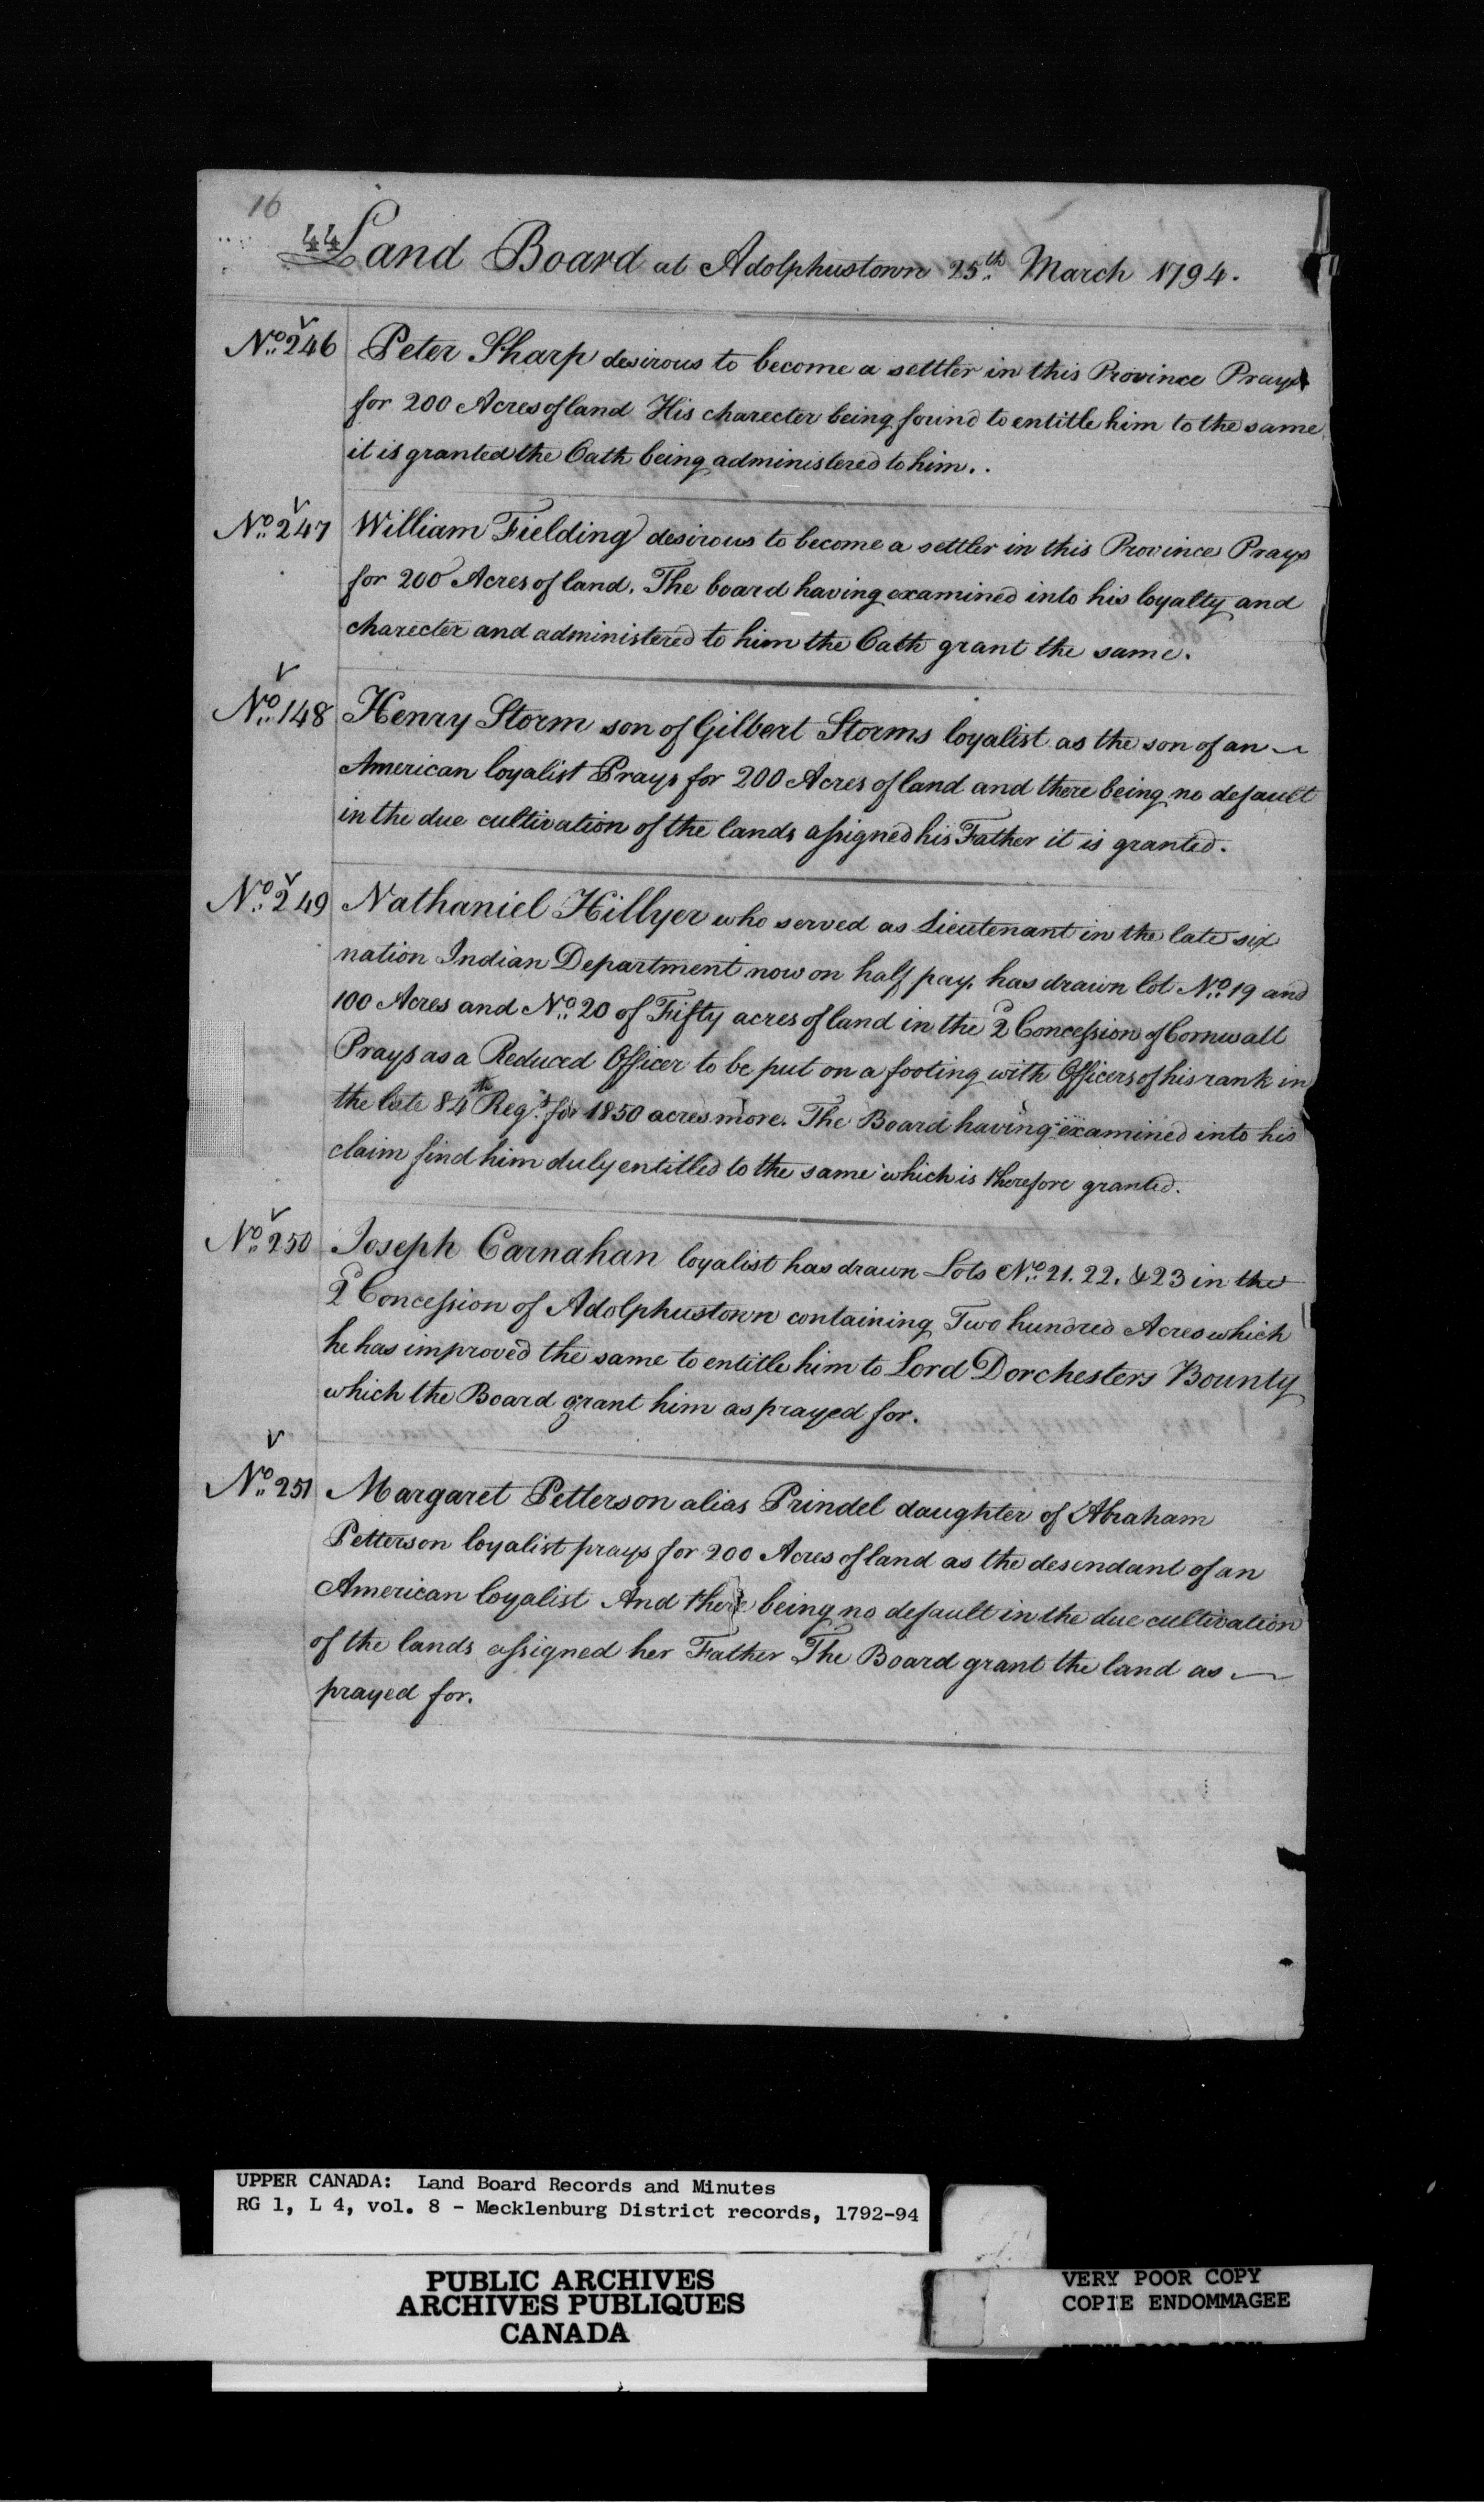 16
44
Land Board at Adolphustown 25th March 1794.
No. 246 Peter Sharp desirous to become a settler in this Province Prays
for 200 Acres of land His charecter being found to entitle him to the same
it is granted the Oath being administered to him..
No. 247 William Fielding desirous to become a settler in this Province Prays
for 200 Acres of land. The board having examined into his loyalty and
charecter and administered to him the Oath grant the same.
No. 148 Henry Storm son of Gilbert Storms loyalist as the son of an
American loyalist Prays for 200 Acres of land and there being no default
in the due cultivation of the lands assigned his Father it is granted.
No. 249 Nathaniel Hillyer who served as Lieutenant in the late six
nation Indian Department now on half pay. has drawn lot No. 19 and
100 Acres and No. 20 of Fifty acres of land in the 2d Concession of Cornwall
Prays as a Reduced Officer to be put on a footing with Officers of his rank in
the late 84th Regt. for 1850 acres more. The Board having examined into his
claim find him duly entitled to the same which is therefore granted.
No. 250 Joseph Carnahan loyalist has drawn Lots No. 21. 22. & 23 in the
2d Concession of Adolphustown containing Two hundred Acres which
he has improved the same to entitle him to Lord Dorchesters Bounty
which the Board grant him as prayed for.
No. 251 Margaret Petterson alias Prindel daughter of Abraham
Petterson loyalist prays for 200 Acres of land as the desendant of an
American loyalist And there being no default in the due cultivation
of the lands assigned her Father The Board grant the land as
prayed for.
UPPER CANADA: Land Board Records and Minutes
RG 1, L 4, vol. 8 - Mecklenburg District records, 1792-94
PUBLIC ARCHIVES
ARCHIVES PUBLIQUES
CANADA
VERY POOR COPY
COPIE ENDOMMAGEE